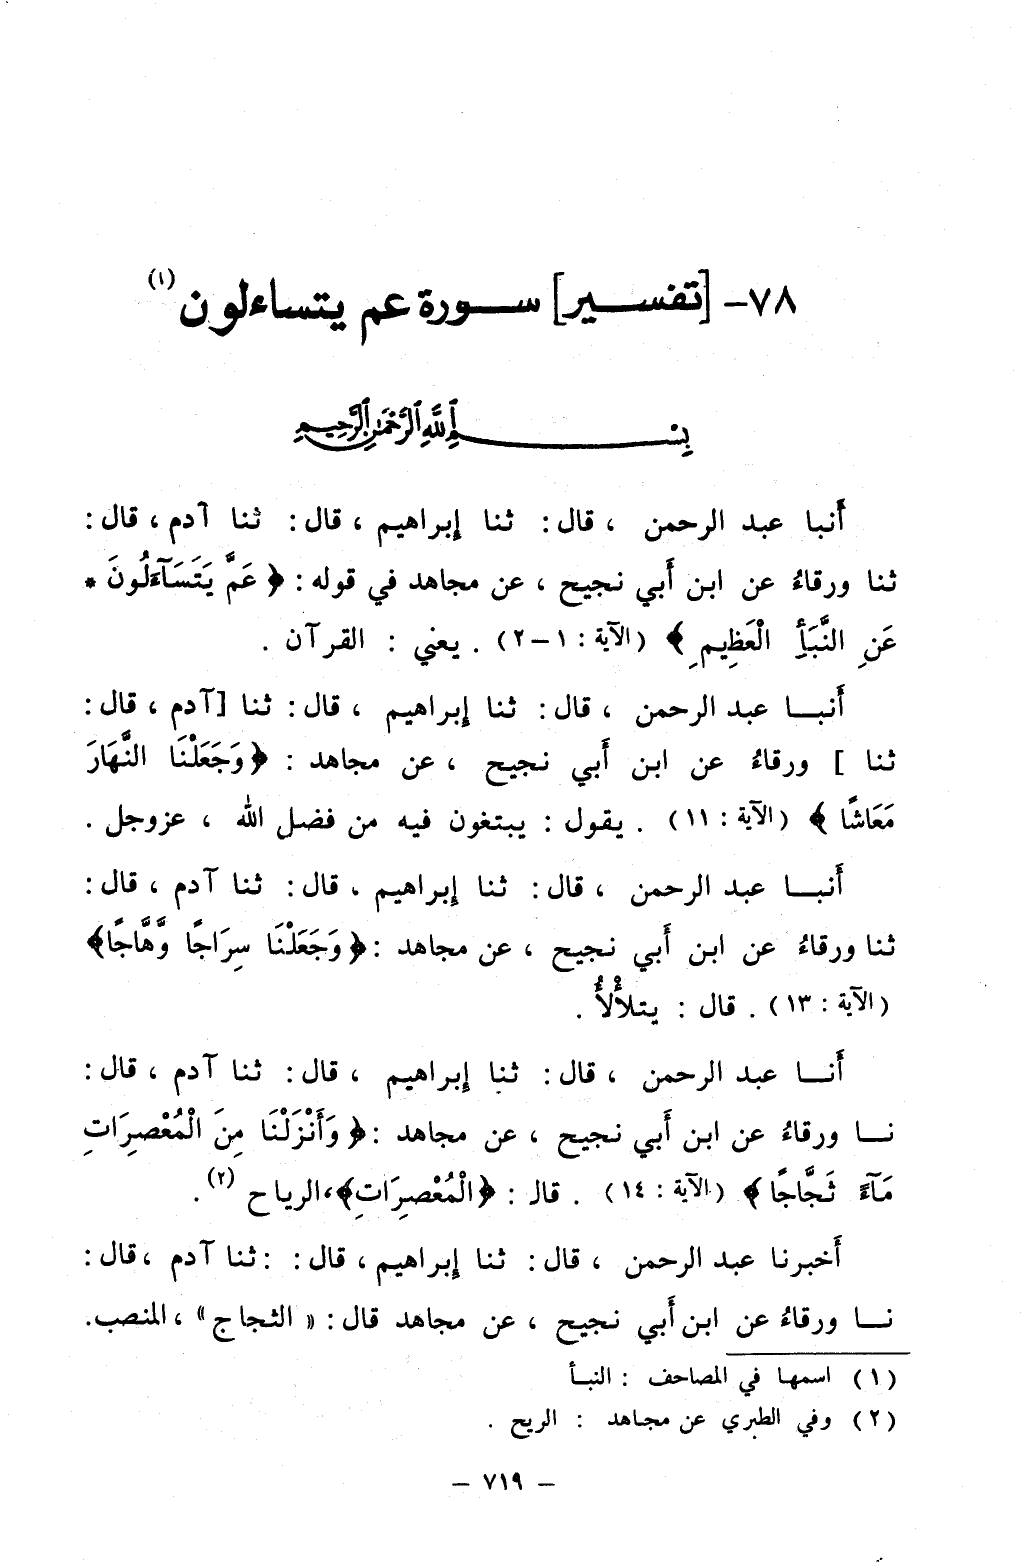 ٧٨– [تفسير] سورة عم يتساءلون (١)
بسم الله الرحمن الرحيم
أنبا عبد الرحمن ، قال: ثنا إبراهيم ، قال: ثنا آدم ، قال:
ثنا ورقاءُ عن ابن أبي نجيح ، عن مجاهد في قوله : ﴿ عَمَّ يَتَسَآءَلُونَ *
عَنِ النَّبَأِ الْعَظِيمِ ﴾ (الآية : ١–٢) . يعني : القرآن .
أنبــا عبد الرحمن ، قال: ثنا إبراهيم ، قال: ثنا [آدم ، قال:
ثنا ] ورقاءُ عن ابن أبي نجيح ، عن مجاهد : ﴿وَجَعَلْنَا النَّهَارَ
مَعَاشًا ﴾ (الآية : ١١) . يقول : يبتغون فيه من فضل الله ، عزوجل .
أنبــا عبد الرحمن ، قال: ثنا إبراهيم . قال: ثنا آدم ، قال:
ثنا ورقاءُ عن ابن أبي نجيح ، عن مجاهد :﴿وَجَعَلْنَا سِرَاجًا وَّهَّاجًا﴾
(الآية : ١٣) . قال : يتلأْلأُ .
أنــا عبد الرحمن ، قال: ثنا إبراهيم ، قال: ثنا آدم ، قال:
نــا ورقاءُ عن ابن أبي نجيح ، عن مجاهد :﴿ وَأَنْزَلْنَا مِنَ الْمُعْصِرَاتِ
مَآءً ثَجَّاجًا﴾ (الآية : ١٤) . قال : ﴿الْمُعْصِرَاتِ﴾،الرياح (٢) .
أخبرنا عبد الرحمن ، قال: ثنا إبراهيم ، قال: :ثنا آدم ،قال:
نــا ورقاءُ عن ابن أبي نجيح ، عن مجاهد قال: « الثجاج» ، المنصب.
(١) اسمها في المصاحف : النبأ
(٢) وفي الطبري عن مجاهد : الريح .
– ٧١٩ –